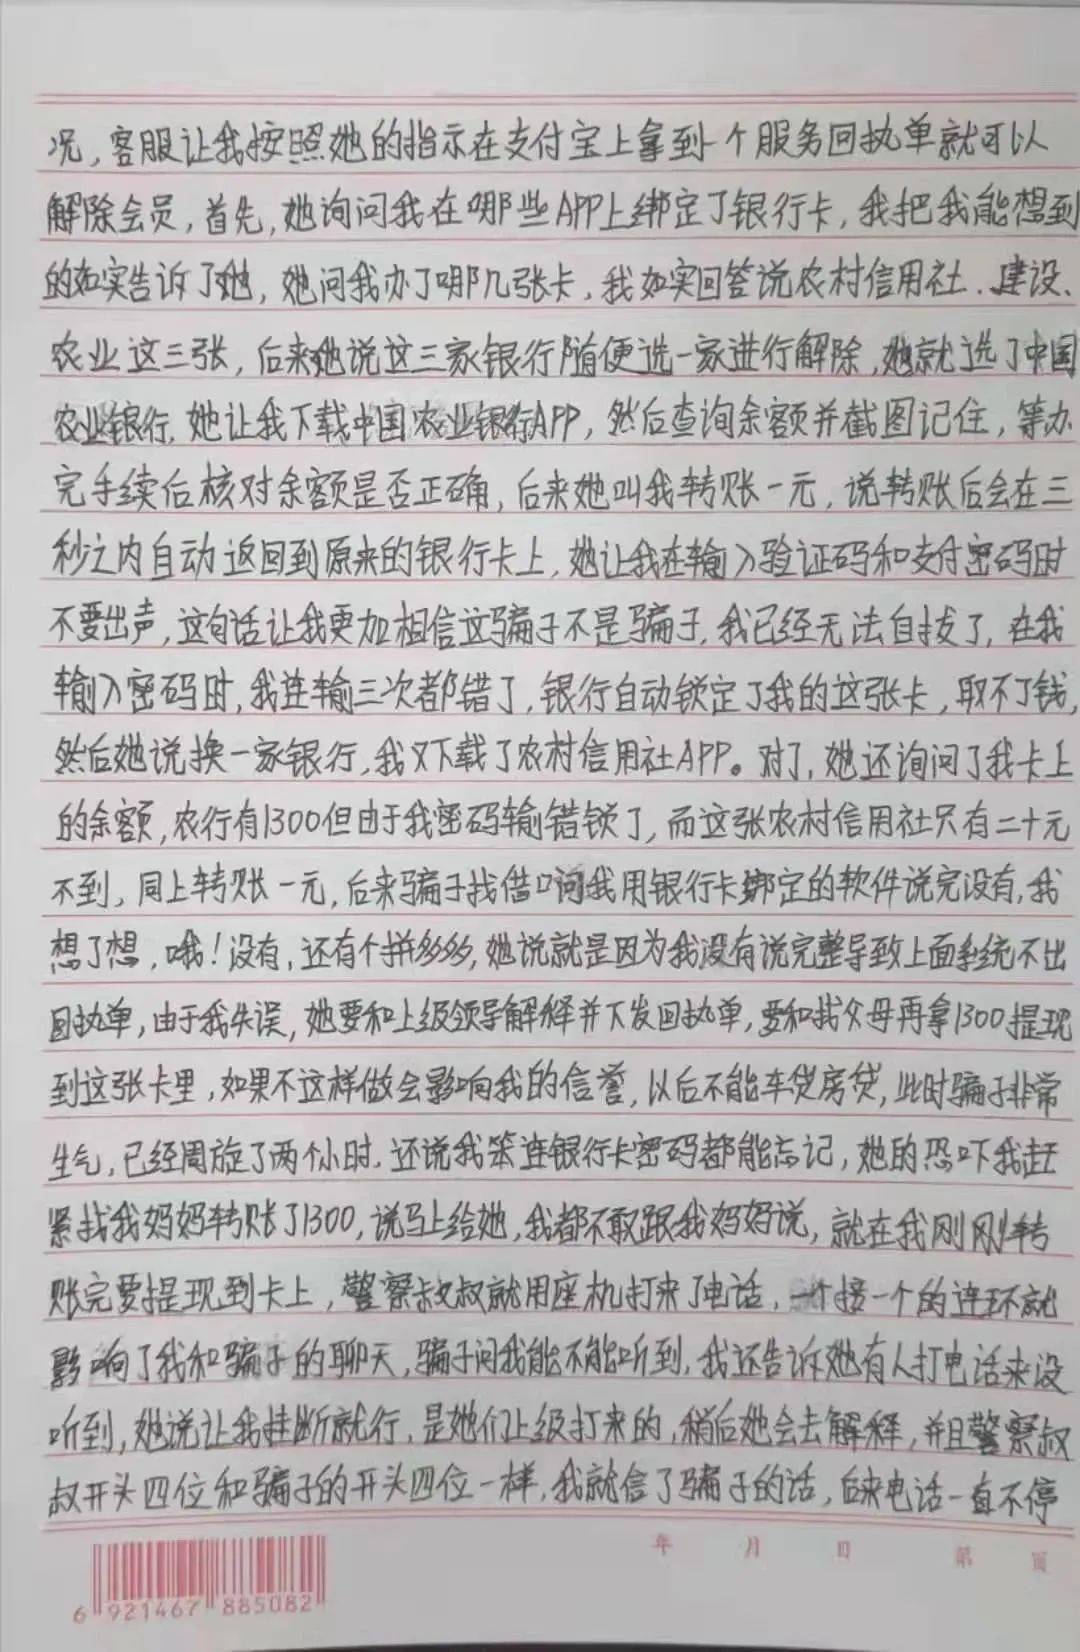 况，客服让我按照她的指示在支付宝上拿到一个服务回执单就可以
解除会员，首先，她询问我在哪些APP上绑定了银行卡，我把我能想到
的如实告诉了她，她问我办了哪几张卡，我如实回答说农村信用社、建设、
农业这三张，后来她说这三家银行随便选一家进行解除，她就选了中国
农业银行，她让我下载中国农业银行APP，然后查询余额并截图记住，等办
完手续后核对余额是否正确，后来她叫我转账一元，说转账后会在三
秒之内自动返回到原来的银行卡上，她让我在输入验证码和支付密码时
不要出声，这句话让我更加相信这骗子不是骗子，我已经无法自拔了，在我
输入密码时，我连输三次都错了，银行自动锁定了我的这张卡，取不了钱，
然后她说换一家银行，我又下载了农村信用社APP。对了，她还询问了我卡上
的余额，农行有1300但由于我密码输错锁了，而这张农村信用社只有二十元
不到，同上转账一元，后来骗子找借口问我用银行卡绑定的软件说完没有，我
想了想，哦！没有，还有个拼多多，她说就是因为我没有说完整导致上面系统不出
回执单，由于我失误，她要和上级领导解释并下发回执单，要和我父母再拿1300提现
到这张卡里，如果不这样做会影响我的信誉，以后不能车贷房贷，此时骗子非常
生气，已经周旋了两个小时，还说我笨连银行卡密码都能忘记，她的恐吓我赶
紧找我妈妈转账了1300，说马上给她，我都不敢跟我妈妈说，就在我刚刚转
账完要提现到卡上，警察叔叔就用座机打来了电话，一个接一个的连环就
影响了我和骗子的聊天，骗子问我能不能听到，我还告诉她有人打电话来没
听到，她说让我挂断就行，是她们上级打来的，稍后她会去解释，并且警察叔
叔开头四位和骗子的开头四位一样，我就信了骗子的话，后来电话一直不停
年 月 日 第 页
6 921467 885082